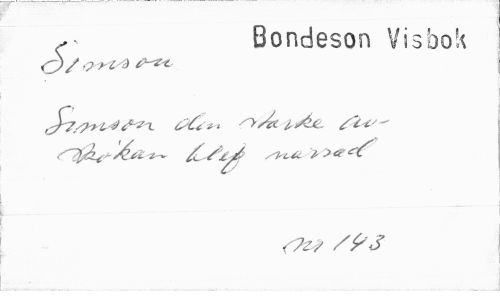 Bondeson Visbok
Simson
Simson den starke av
skökan blef narrad
nr 143